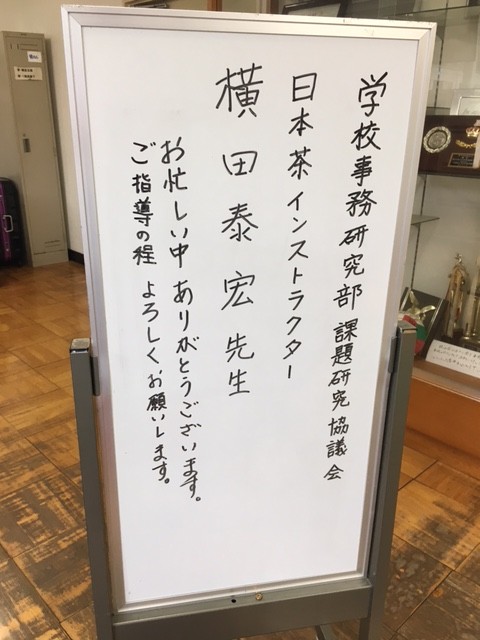 学校事務研究部 課題研究協議会
日本茶インストラクター
横田泰宏先生
お忙しい中 ありがとうございます。
ご指導の程 よろしくお願いします。